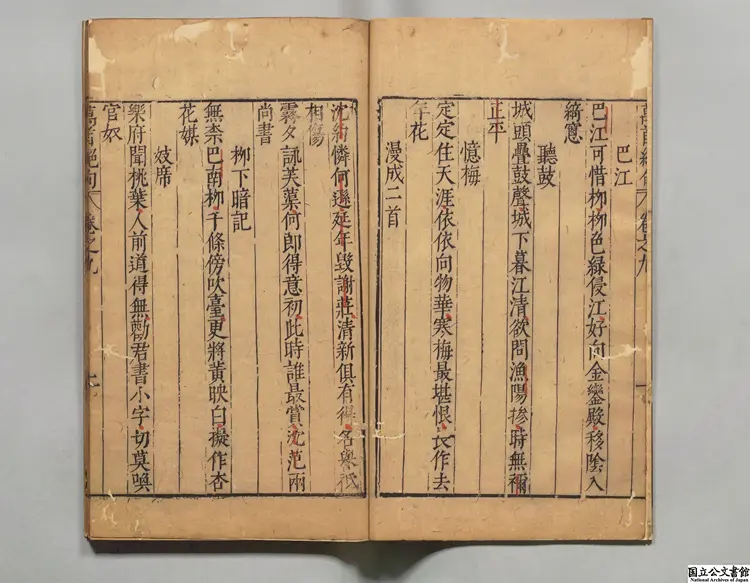 巴江
巴江可惜柳柳色綠侵江好向金鑾殿移陰入
綺窻
聽鼓
城頭疊鼓聲城下暮江清欲問漁陽摻時無禰
正平
憶梅
定定住天涯依依向物華寒梅最堪恨長作去
年花
漫成二首
沈約憐何遜延年毀謝莊清新俱有得名譽底
相傷
霧夕詠芙蕖何郎得意初此時誰最賞沈范兩
尚書
柳下暗記
無柰巴南柳千條傍吹臺更將黄映白擬作杏
花媒
妓席
樂府聞桃葉人前道得無勸君書小字切莫喚
官奴
萬首絕句 卷之九
国立公文書館
National Archives of Japan